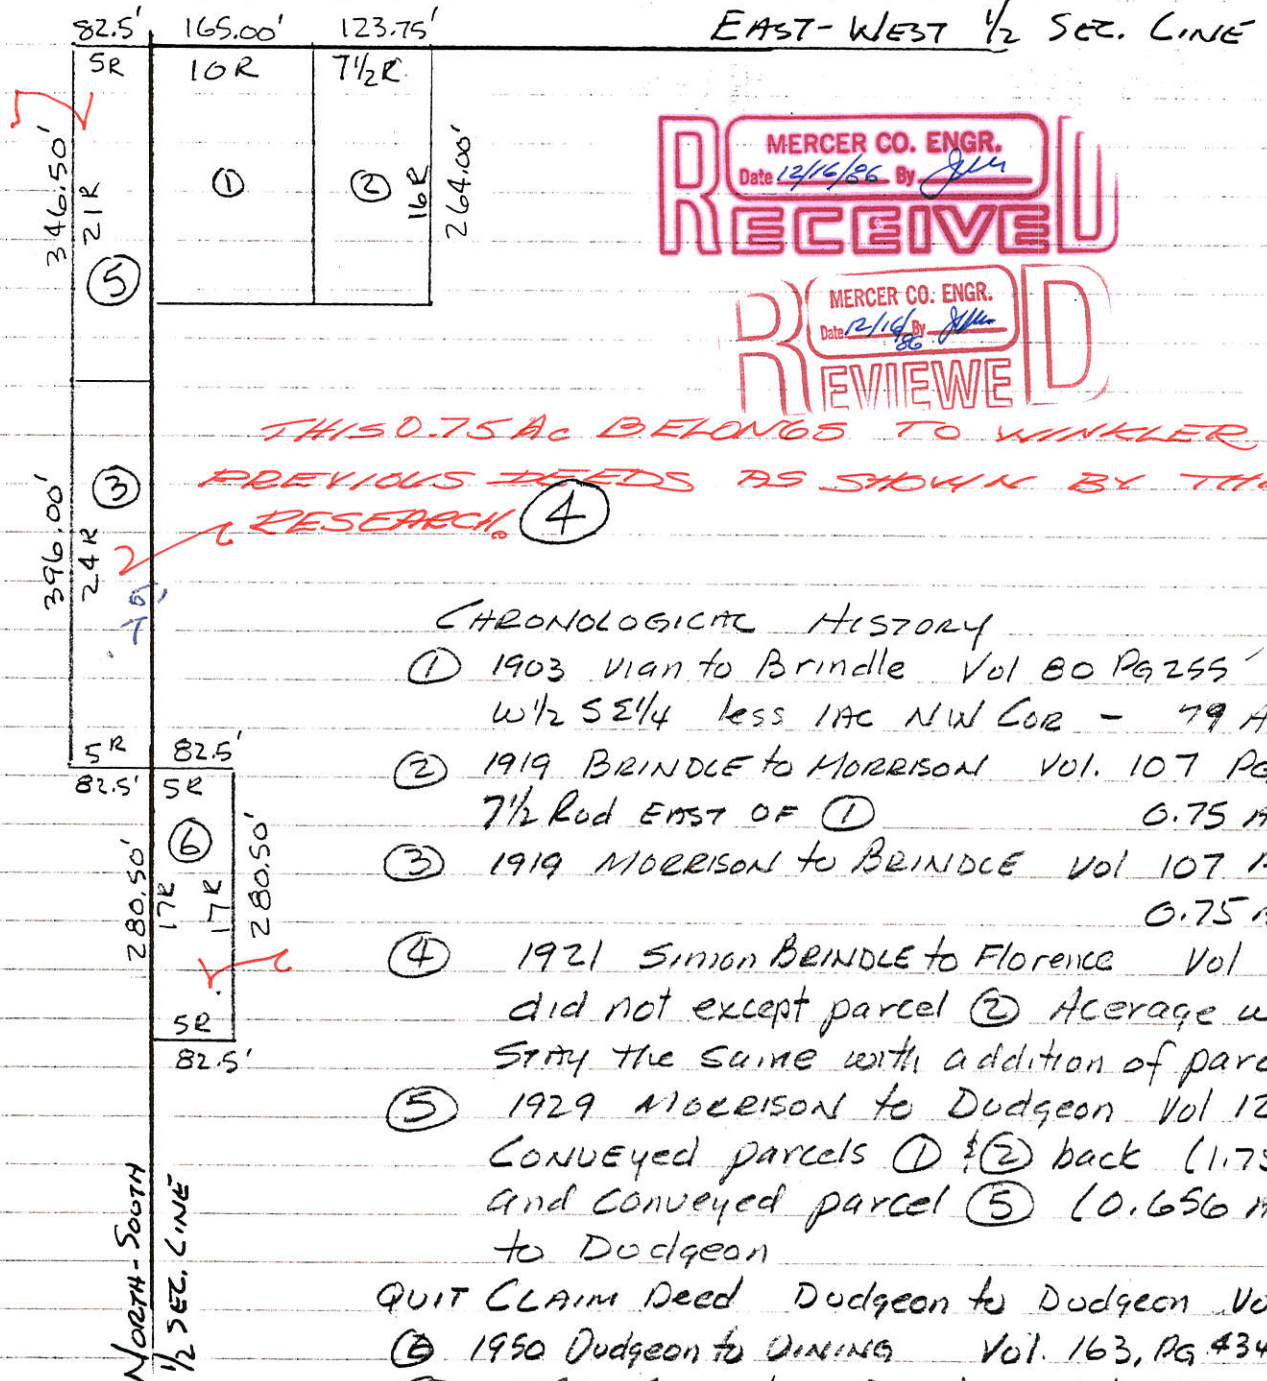 82.5' 165.00' 123.75' EAST-WEST 1/2 SEC. LINE
5R 10R 7 1/2 R
① ② 16R 264.00'
346.50' 21R
⑤
MERCER CO. ENGR.
Date 12/16/86 By
RECEIVED
MERCER CO. ENGR.
Date 12/16/86 By
REVIEWED
THIS 0.75 Ac BELONGS TO WINKLER
PREVIOUS DEEDS AS SHOWN BY
RESEARCH. ④
③
396.00' 24R
.75
5R 82.5'
82.5' 5R
⑥
280.50' 17R 17R 280.50'
5R
82.5'
NORTH-SOUTH
1/2 SEC. LINE
CHRONOLOGICAL HISTORY
① 1903 Vian to Brindle Vol 80 PG 255
W 1/2 SE 1/4 less 1AC NW COR - 79 A
② 1919 BRINDLE to MORRISON VOL. 107 PG
7 1/2 Rod EAST OF ① 0.75 A
③ 1919 MORRISON to BRINDLE Vol 107
0.75
④ 1921 Simon BRINDLE to Florence Vol
did not except parcel ② Acerage w
STAY the same with addition of parc
⑤ 1929 MORRISON to Dudgeon Vol 12
CONVEYED parcels ① & ② back (1.75
and conveyed parcel ⑤ (0.656 A
to Dudgeon
QUIT CLAIM Deed Dudgeon to Dudgeon Vo
⑥ 1950 Dudgeon to DINING Vol. 163, PG 434